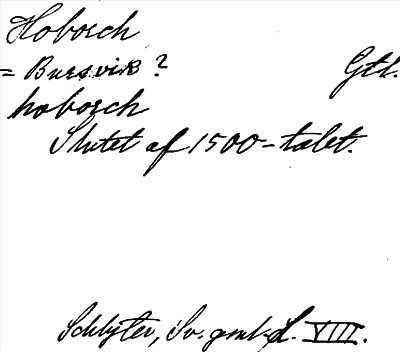 Hoborch
= Bursvik? Gtl.
hoborch
Slutet af 1500-talet.
Schlyter, Sv. gml. L. VIII.